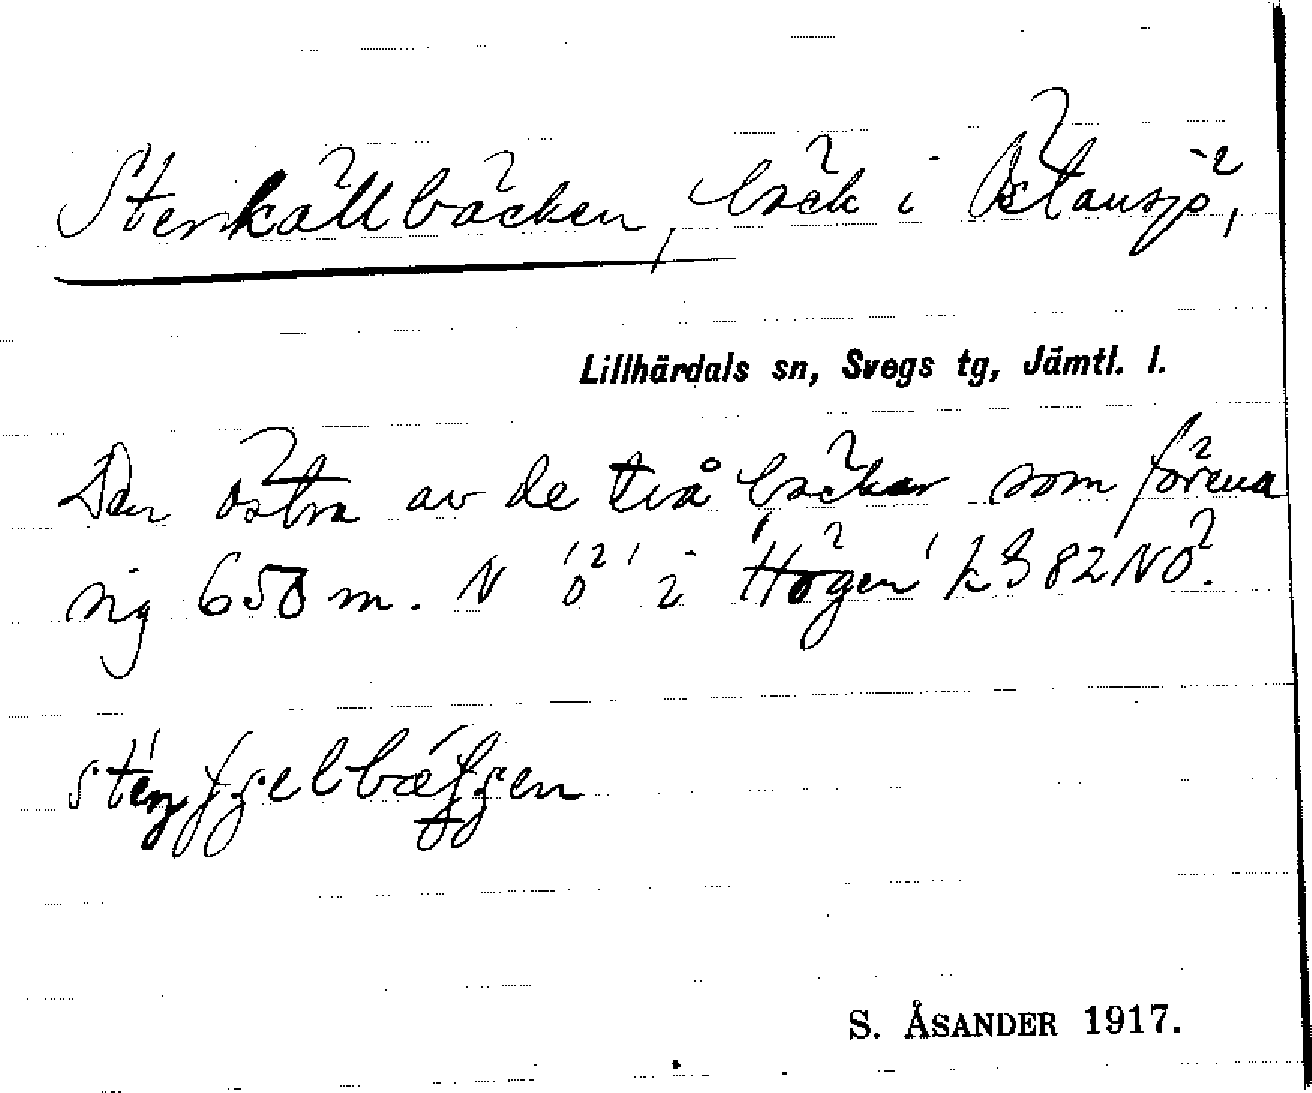 Stenkällbäcken, bäck i Östansjö,
Lillhärdals sn, Svegs tg, Jämtl. l.
Den östra av de två bäckar som förena
sig 650 m. N 'ö' i 'Högen' k§ 82 NÖ.
S. ÅSANDER 1917.